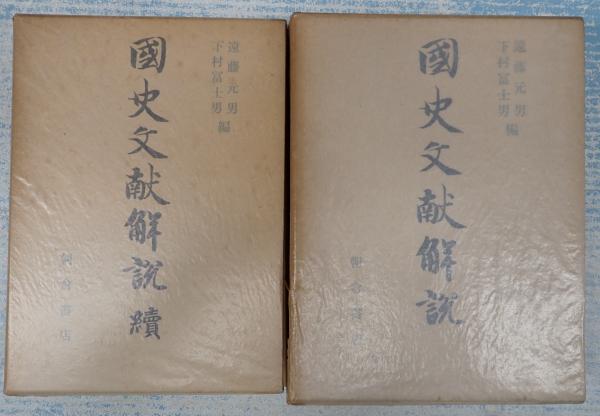 遠藤元男
下村冨士男 編
國史文献解説 續
朝倉書店
遠藤元男
下村冨士男 編
國史文献解説
朝倉書店